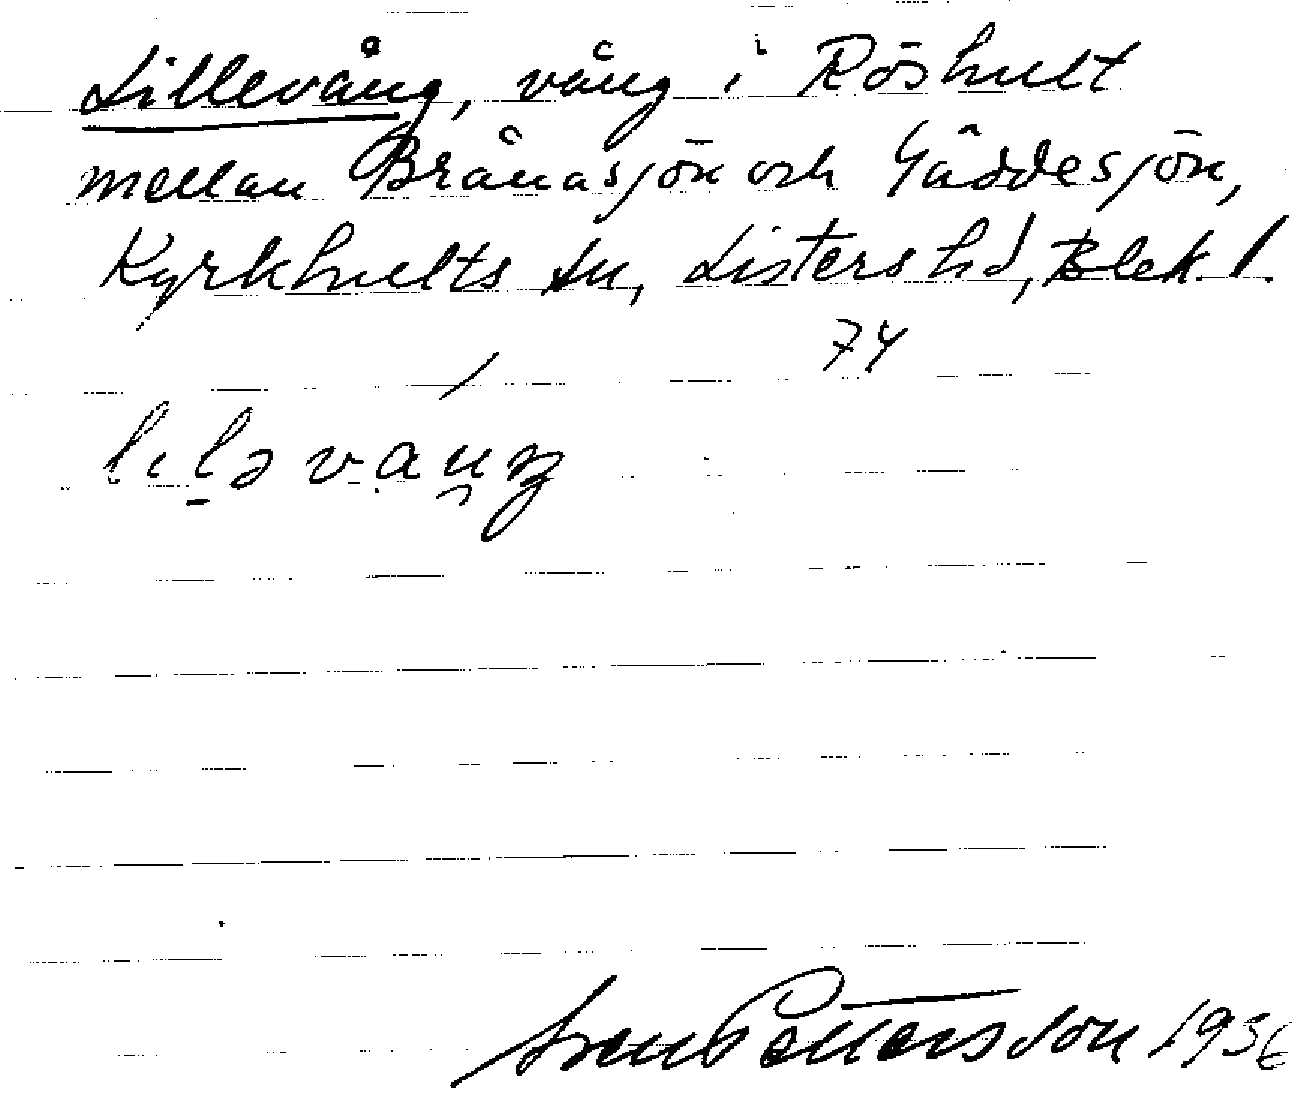 Lillevång, vång i Röshult
mellan Brånasjön och Gäddesjön,
Kyrkhults sn, Listers hd, Blek. l.
74
lilə vaŋ
Sven Pettersson 1936